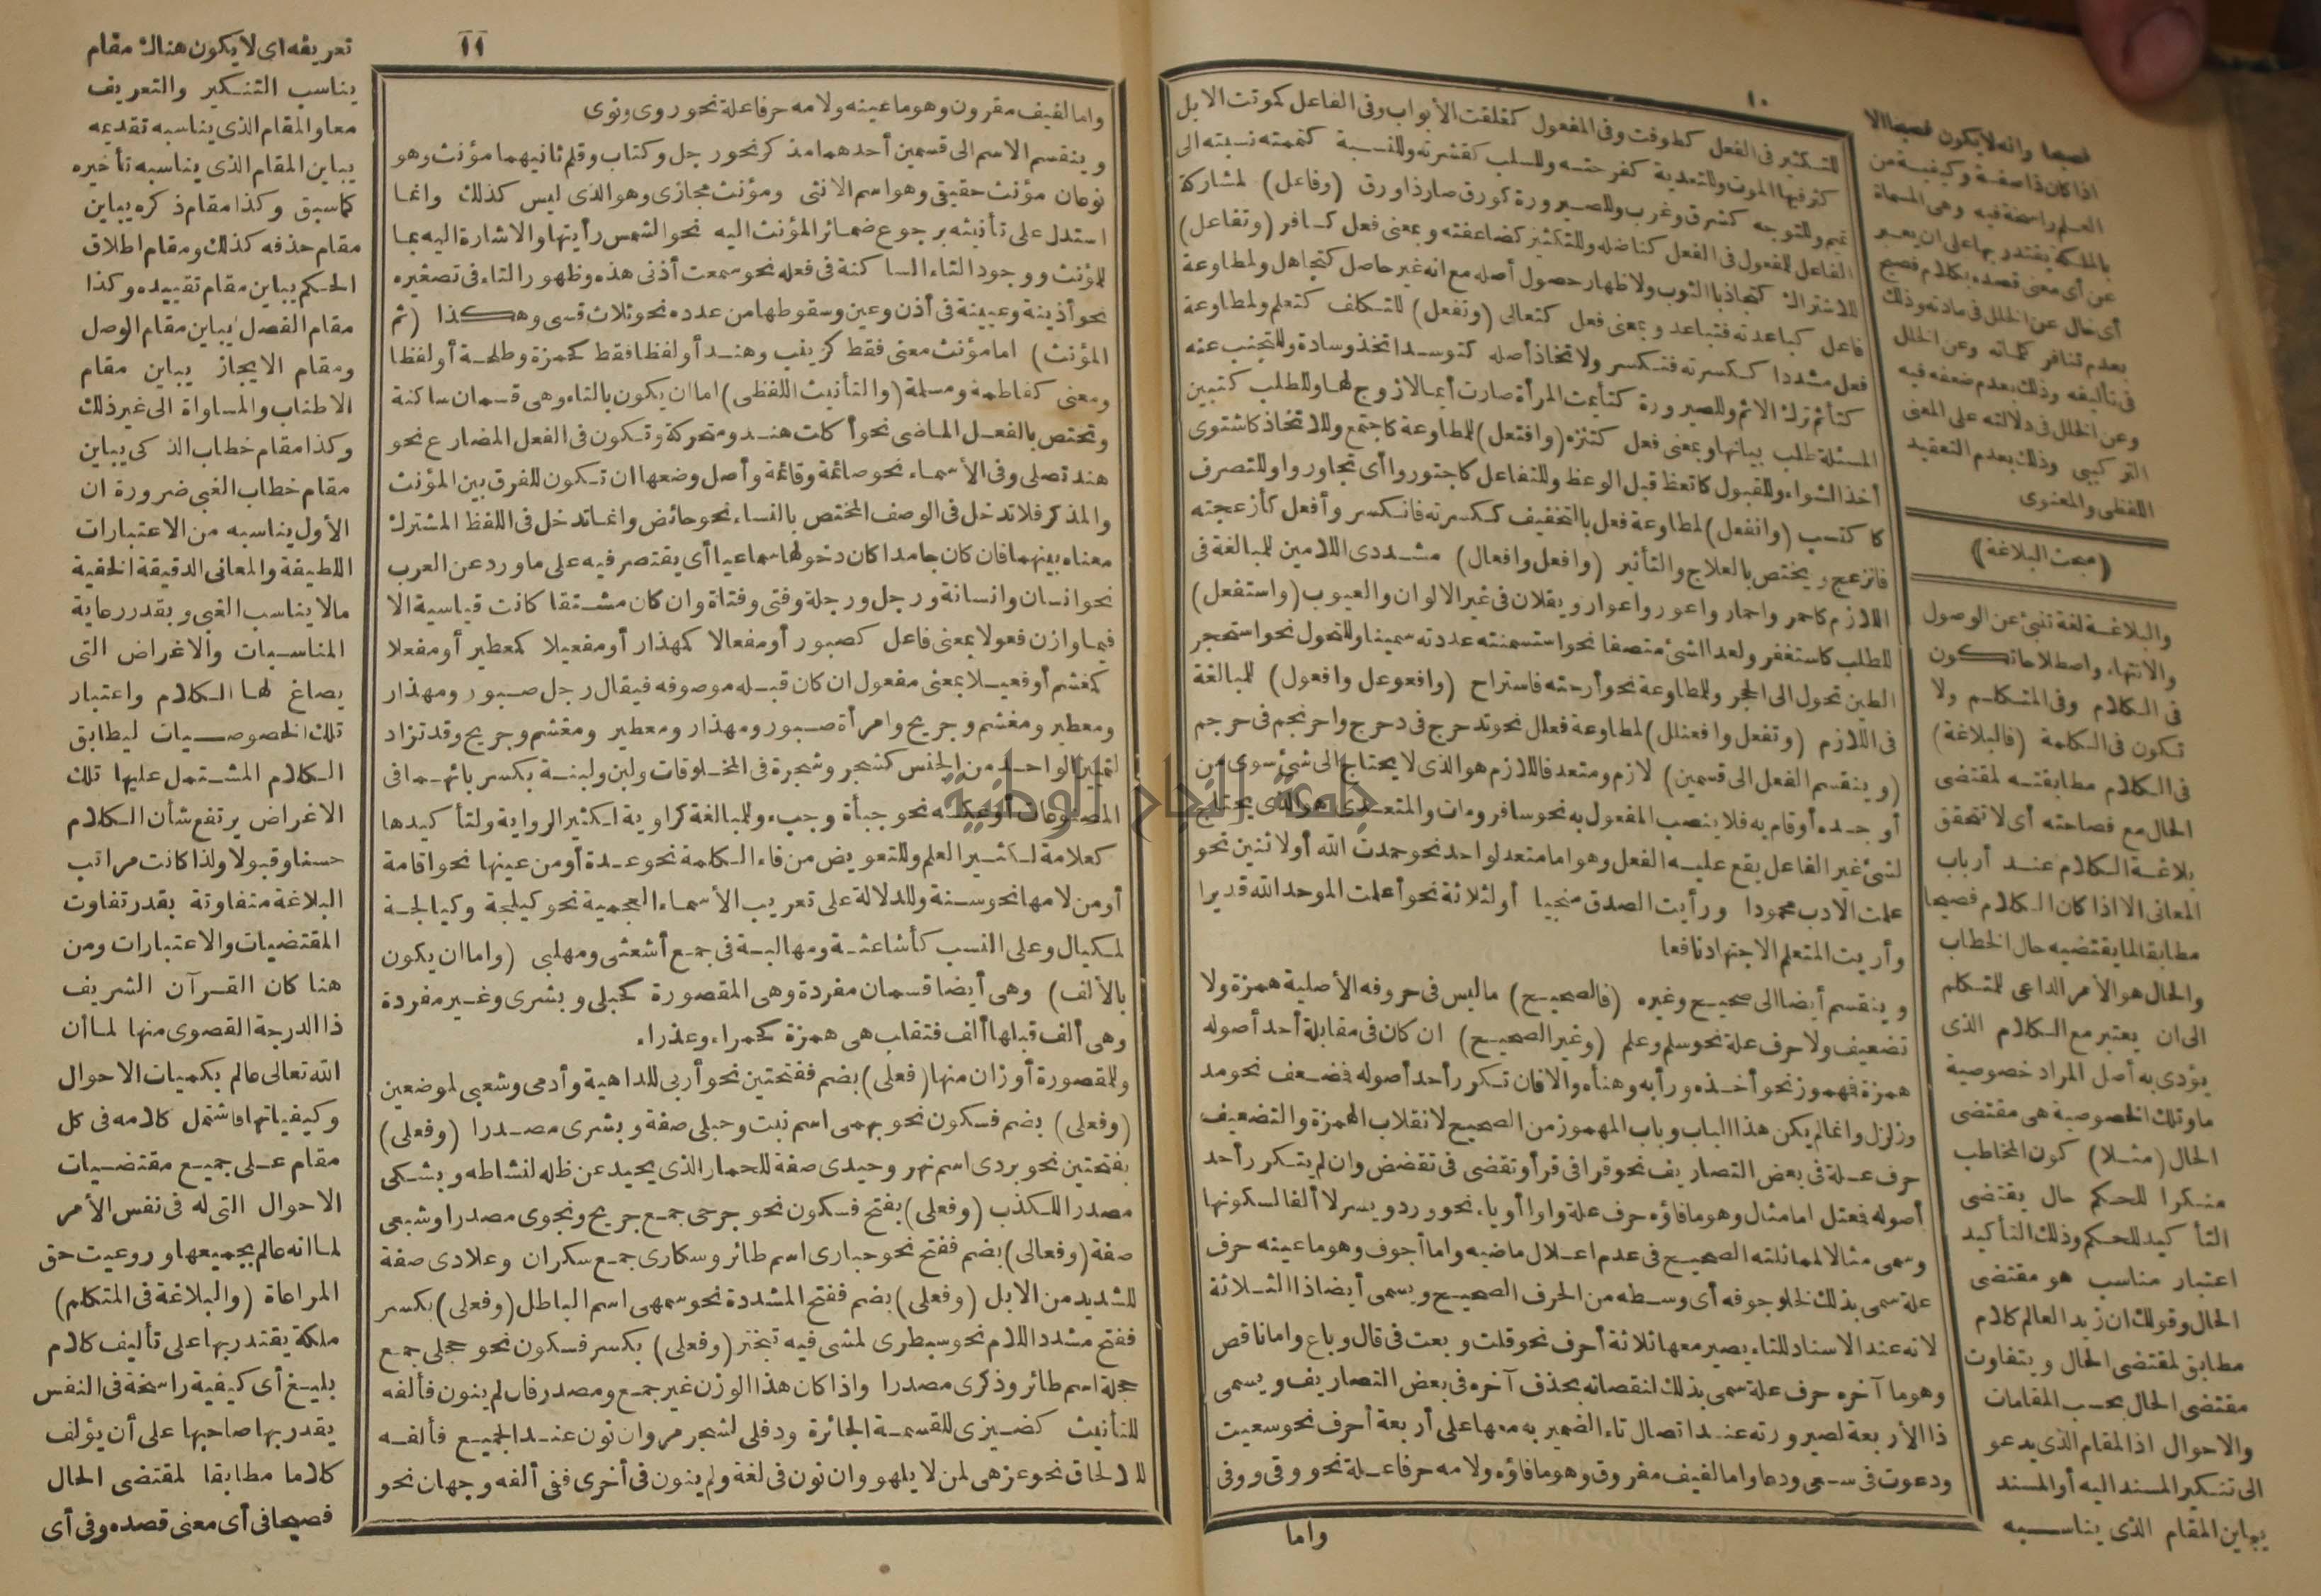 ١٠
للتكثير فى الفعل كطوفت وفى المفعول كغلقت الأبواب وفى الفاعل كموتت الابل
كثر فيها الموت وللتعدية كفرحته وللسلب كقشرته وللنسبة كتممته نسبته الى
تميم وللتوجه كشرق وغرب وللصيرورة كورق صار ذا ورق (وفاعل) لمشاركة
الفاعل المفعول فى الفعل كناضله وللتكثير كضاعفته وبمعنى فعل كسافر (وتفاعل)
للاشتراك كتجاذبا الثوب ولاظهار حصول أصله مع انه غير حاصل كتجاهل ولمطاوعة
فاعل كباعدته فتباعد وبمعنى فعل كتعالى (وتفعل) للتكلف كتعلم ولمطاوعة
فعل مشددا ككسرته فتكسر ولاتخاذ أصله كتوسد اتخذ وسادة وللتجنب عنه
كتأثم ترك الاثم وللصيرورة كتأيمت المرأة صارت أيما لا زوج لها وللطلب كتبين
المسئلة طلب بيانها وبمعنى فعل كتنزه (وافتعل) للمطاوعة كاجتمع وللاتخاذ كاشتوى
أخذ الشواء وللقبول كاتعظ قبل الوعظ وللتفاعل كاجتوروا أى تجاوروا وللتصرف
كاكتسب (وانفعل) لمطاوعة فعل بالتخفيف ككسرته فانكسر وأفعل كأزعجته
فانزعج ويختص بالعلاج والتأثير (وافعل وافعال) مشددى اللامين للمبالغة فى
اللازم كاحمر واحمار واعور واعوار ويقلان فى غير الالوان والعيوب (واستفعل)
للطلب كاستغفر ولعد الشئ متصفا نحو استسمنته عددته سمينا وللتحول نحو استحجر
الطين تحول الى الحجر وللمطاوعة نحو أرحته فاستراح (وافعوعل وافعول) للمبالغة
فى اللازم (وتفعل وافعنلل) لمطاوعة فعلل نحو تدحرج فى دحرج واحرنجم فى حرجم
(وينقسم الفعل الى قسمين) لازم ومتعد فاللازم هو الذى لا يحتاج الى شئ سوى من
أوجده أو قام به فلا ينصب المفعول به نحو سافر ومات والمتعدى هو الذى يحتاج
لشئ غير الفاعل يقع عليه الفعل وهو اما متعد لواحد نحو حمدت الله أو لاثنين نحو
علمت الادب محمودا ورأيت الصدق منجيا أو لثلاثة نحو أعلمت الموحد الله قديرا
وأريت المتعلم الاجتهاد نافعا
وينقسم أيضا الى صحيح وغيره (فالصحيح) ما ليس فى حروفه الأصلية همزة ولا
تضعيف ولا حرف علة نحو سلم وعلم (وغير الصحيح) ان كان فى مقابلة أحد أصوله
همزة فهموز نحو أخذه ورأبه وهنأه والا فان تكرر أحد أصوله فضعف نحو مد
وزلزل وانما لم يكن هذا الباب وباب المهموز من الصحيح لانقلاب الهمزة والتضعيف
حرف علة فى بعض التصاريف نحو قرا فى قرأ وتقضى فى تقضض وان لم يتكرر أحد
أصوله فعتل اما مثال وهو ما فاؤه حرف علة واوا أو ياء نحو ورد ويسر لا ألفا لسكونها
وسمى مثالا لمماثلته الصحيح فى عدم اعلال ماضيه واما أجوف وهو ما عينه حرف
علة سمى بذلك لخلو جوفه أى وسطه من الحرف الصحيح ويسمى أيضا ذا الثلاثة
لانه عند الاسناد للتاء يصير معها ثلاثة أحرف نحو قلت وبعت فى قال وباع واما ناقص
وهو ما آخره حرف علة سمى بذلك لنقصانه بحذف آخره فى بعض التصاريف ويسمى
ذا الأربعة لصيرورته عند اتصال تاء الضمير به معها على أربعة أحرف نحو سعيت
ودعوت فى سعى ودعا واما لفيف مفروق وهو ما فاؤه ولامه حرفا علة نحو وقى ووفى
واما
فصيحا وانه لا يكون فصيحا الا
اذا كان ذا صفة وكيفية من
العلم راسخة فيه وهى المسماة
بالملكة يقتدر بها على ان يعبر
عن أى معنى قصده بكلام فصيح
أى خال عن الخلل فى مادته وذلك
بعدم تنافر كلماته وعن الخلل
فى تأليفه وذلك بعدم ضعفه فيه
وعن الخلل فى دلالته على المعنى
التركيبى وذلك بعدم التعقيد
اللفظى والمعنوى
(مبحث البلاغة)
والبلاغة لغة تنبئ عن الوصول
والانتهاء واصطلاحا تكون
فى الكلام وفى المتكلم ولا
تكون فى الكلمة (فالبلاغة)
فى الكلام مطابقته لمقتضى
الحال مع فصاحته أى لا تتحقق
بلاغة الكلام عند أرباب
المعانى الا اذا كان الكلام فصيحا
مطابقا لما يقتضيه حال الخطاب
والحال هو الأمر الداعى للمتكلم
الى ان يعتبر مع الكلام الذى
يؤدى به أصل المراد خصوصية
ما وتلك الخصوصية هى مقتضى
الحال (مثلا) كون المخاطب
منكرا للحكم حال يقتضى
التأكيد للحكم وذلك التأكيد
اعتبار مناسب هو مقتضى
الحال وقولك ان زيد العالم كلام
مطابق لمقتضى الحال ويتفاوت
مقتضى الحال بحسب المقامات
والاحوال اذ المقام الذى يدعو
الى تنكير المسند اليه أو المسند
يباين المقام الذى يناسبه
١١
واما لفيف مقرون وهو ما عينه ولامه حرفا علة نحو روى ونوى
وينقسم الاسم الى قسمين أحدهما مذكر نحو رجل وكتاب وقلم ثانيهما مؤنث وهو
نوعان مؤنث حقيقى وهو اسم الانثى ومؤنث مجازى وهو الذى ليس كذلك وانما
استدل على تأنيثه برجوع ضمائر المؤنث اليه نحو الشمس رأيتها والاشارة اليه بما
للمؤنث ووجود التاء الساكنة فى فعله نحو سمعت أذنى هذه وظهور التاء فى تصغيره
نحو أذينة وعيينة فى أذن وعين وسقوطها من عدده نحو ثلاث قسى وهكذا (ثم
المؤنث) اما مؤنث معنى فقط كزينب وهند أو لفظا فقط كحمزة وطلحة أو لفظا
ومعنى كفاطمة ومسلمة (والتأنيث اللفظى) اما ان يكون بالتاء وهى قسمان ساكنة
وتختص بالفعل الماضى نحو أكلت هند ومتحركة وتكون فى الفعل المضارع نحو
هند تصلى وفى الأسماء نحو صائمة وقائمة وأصل وضعها ان تكون للفرق بين المؤنث
والمذكر فلا تدخل فى الوصف المختص بالنساء نحو حائض وانما تدخل فى اللفظ المشترك
معناه بينهما فان كان جامدا كان دخولها سماعيا أى يقتصر فيه على ما ورد عن العرب
نحو انسان وانسانة ورجل ورجلة وفتى وفتاة وان كان مشتقا كانت قياسية الا
فيما وازن فعولا بمعنى فاعل كصبور أو مفعالا كمهذار أو مفعيلا كمعطير أو مفعلا
كمغشم أو فعيلا بمعنى مفعول ان كان قبله موصوفه فيقال رجل صبور ومهذار
ومعطير ومغشم وجريح وامرأة صبور ومهذار ومعطير ومغشم وجريح وقد تزاد
لتمييز الواحد من الجنس كشجر وشجرة فى المخلوقات ولبن ولبنة بكسر بائهما فى
المصنوعات أو عكسه نحو جبأة وجبء وللمبالغة كراوية لكثير الرواية ولتأكيدها
كعلامة لكثير العلم وللتعويض من فاء الكلمة نحو عدة أو من عينها نحو اقامة
أو من لامها نحو سنة وللدلالة على تعريب الأسماء العجمية نحو كيلجة وكيالجة
لمكيال وعلى النسب كأشاعثة ومهالبة فى جمع أشعثى ومهلبى (واما ان يكون
بالألف) وهى أيضا قسمان مفردة وهى المقصورة كحبلى وبشرى وغير مفردة
وهى ألف قبلها ألف فتقلب هى همزة كحمراء وعذراء
وللمقصورة أوزان منها (فعلى) بضم ففتحتين نحو أربى للداهية وأدمى وشعبى لموضعين
(وفعلى) بضم فسكون نحو بهمى اسم نبت وحبلى صفة وبشرى مصدرا (وفعلى)
بفتحتين نحو بردى اسم نهر وحيدى صفة للحمار الذى يحيد عن ظله لنشاطه وبشكى
مصدرا للكذب (وفعلى) بفتح فسكون نحو جرحى جمع جريح ونجوى مصدرا وشبعى
صفة (وفعالى) بضم ففتح نحو حبارى اسم طائر وسكارى جمع سكران وعلادى صفة
للشديد من الابل (وفعلى) بضم ففتح المشددة نحو سمهى اسم الباطل (وفعلى) بكسر
ففتح مشدد اللام نحو سبطرى لمشى فيه تبختر (وفعلى) بكسر فسكون نحو حجلى جمع
حجلة اسم طائر وذكرى مصدرا واذا كان هذا الوزن غير جمع ومصدر فان لم ينون فألفه
للتأنيث كضيزى للقسمة الجائرة ودفلى لشجر مر وان نون عند الجميع فألفه
للالحاق نحو عزهى لمن لا يلهو وان نون فى لغة ولم ينون فى أخرى ففى ألفه وجهان نحو
تعريفه أى لا يكون هناك مقام
يناسب التنكير والتعريف
معا والمقام الذى يناسبه تقديمه
يباين المقام الذى يناسبه تأخيره
كما سبق وكذا مقام ذكره يباين
مقام حذفه كذلك ومقام اطلاق
الحكم يباين مقام تقييده وكذا
مقام الفصل يباين مقام الوصل
ومقام الايجاز يباين مقام
الاطناب والمساواة الى غير ذلك
وكذا مقام خطاب الذكى يباين
مقام خطاب الغبى ضرورة ان
الأول يناسبه من الاعتبارات
اللطيفة والمعانى الدقيقة الخفية
ما لا يناسب الغبى وبقدر رعاية
المناسبات والاغراض التى
يصاغ لها الكلام واعتبار
تلك الخصوصيات ليطابق
الكلام المشتمل عليها تلك
الاغراض يرتفع شأن الكلام
حسنا وقبولا ولذا كانت مراتب
البلاغة متفاوتة بقدر تفاوت
المقتضيات والاعتبارات ومن
هنا كان القرآن الشريف
ذا الدرجة القصوى منها لما أن
الله تعالى عالم بكميات الاحوال
وكيفياتها فاشتمل كلامه فى كل
مقام على جميع مقتضيات
الاحوال التى له فى نفس الأمر
لما انه عالم بجميعها وروعيت حق
المراعاة (والبلاغة فى المتكلم)
ملكة يقتدر بها على تأليف كلام
بليغ أى كيفية راسخة فى النفس
يقدر بها صاحبها على أن يؤلف
كلاما مطابقا لمقتضى الحال
فصيحا فى أى معنى قصده وفى أى
جامعة النجاح الوطنية